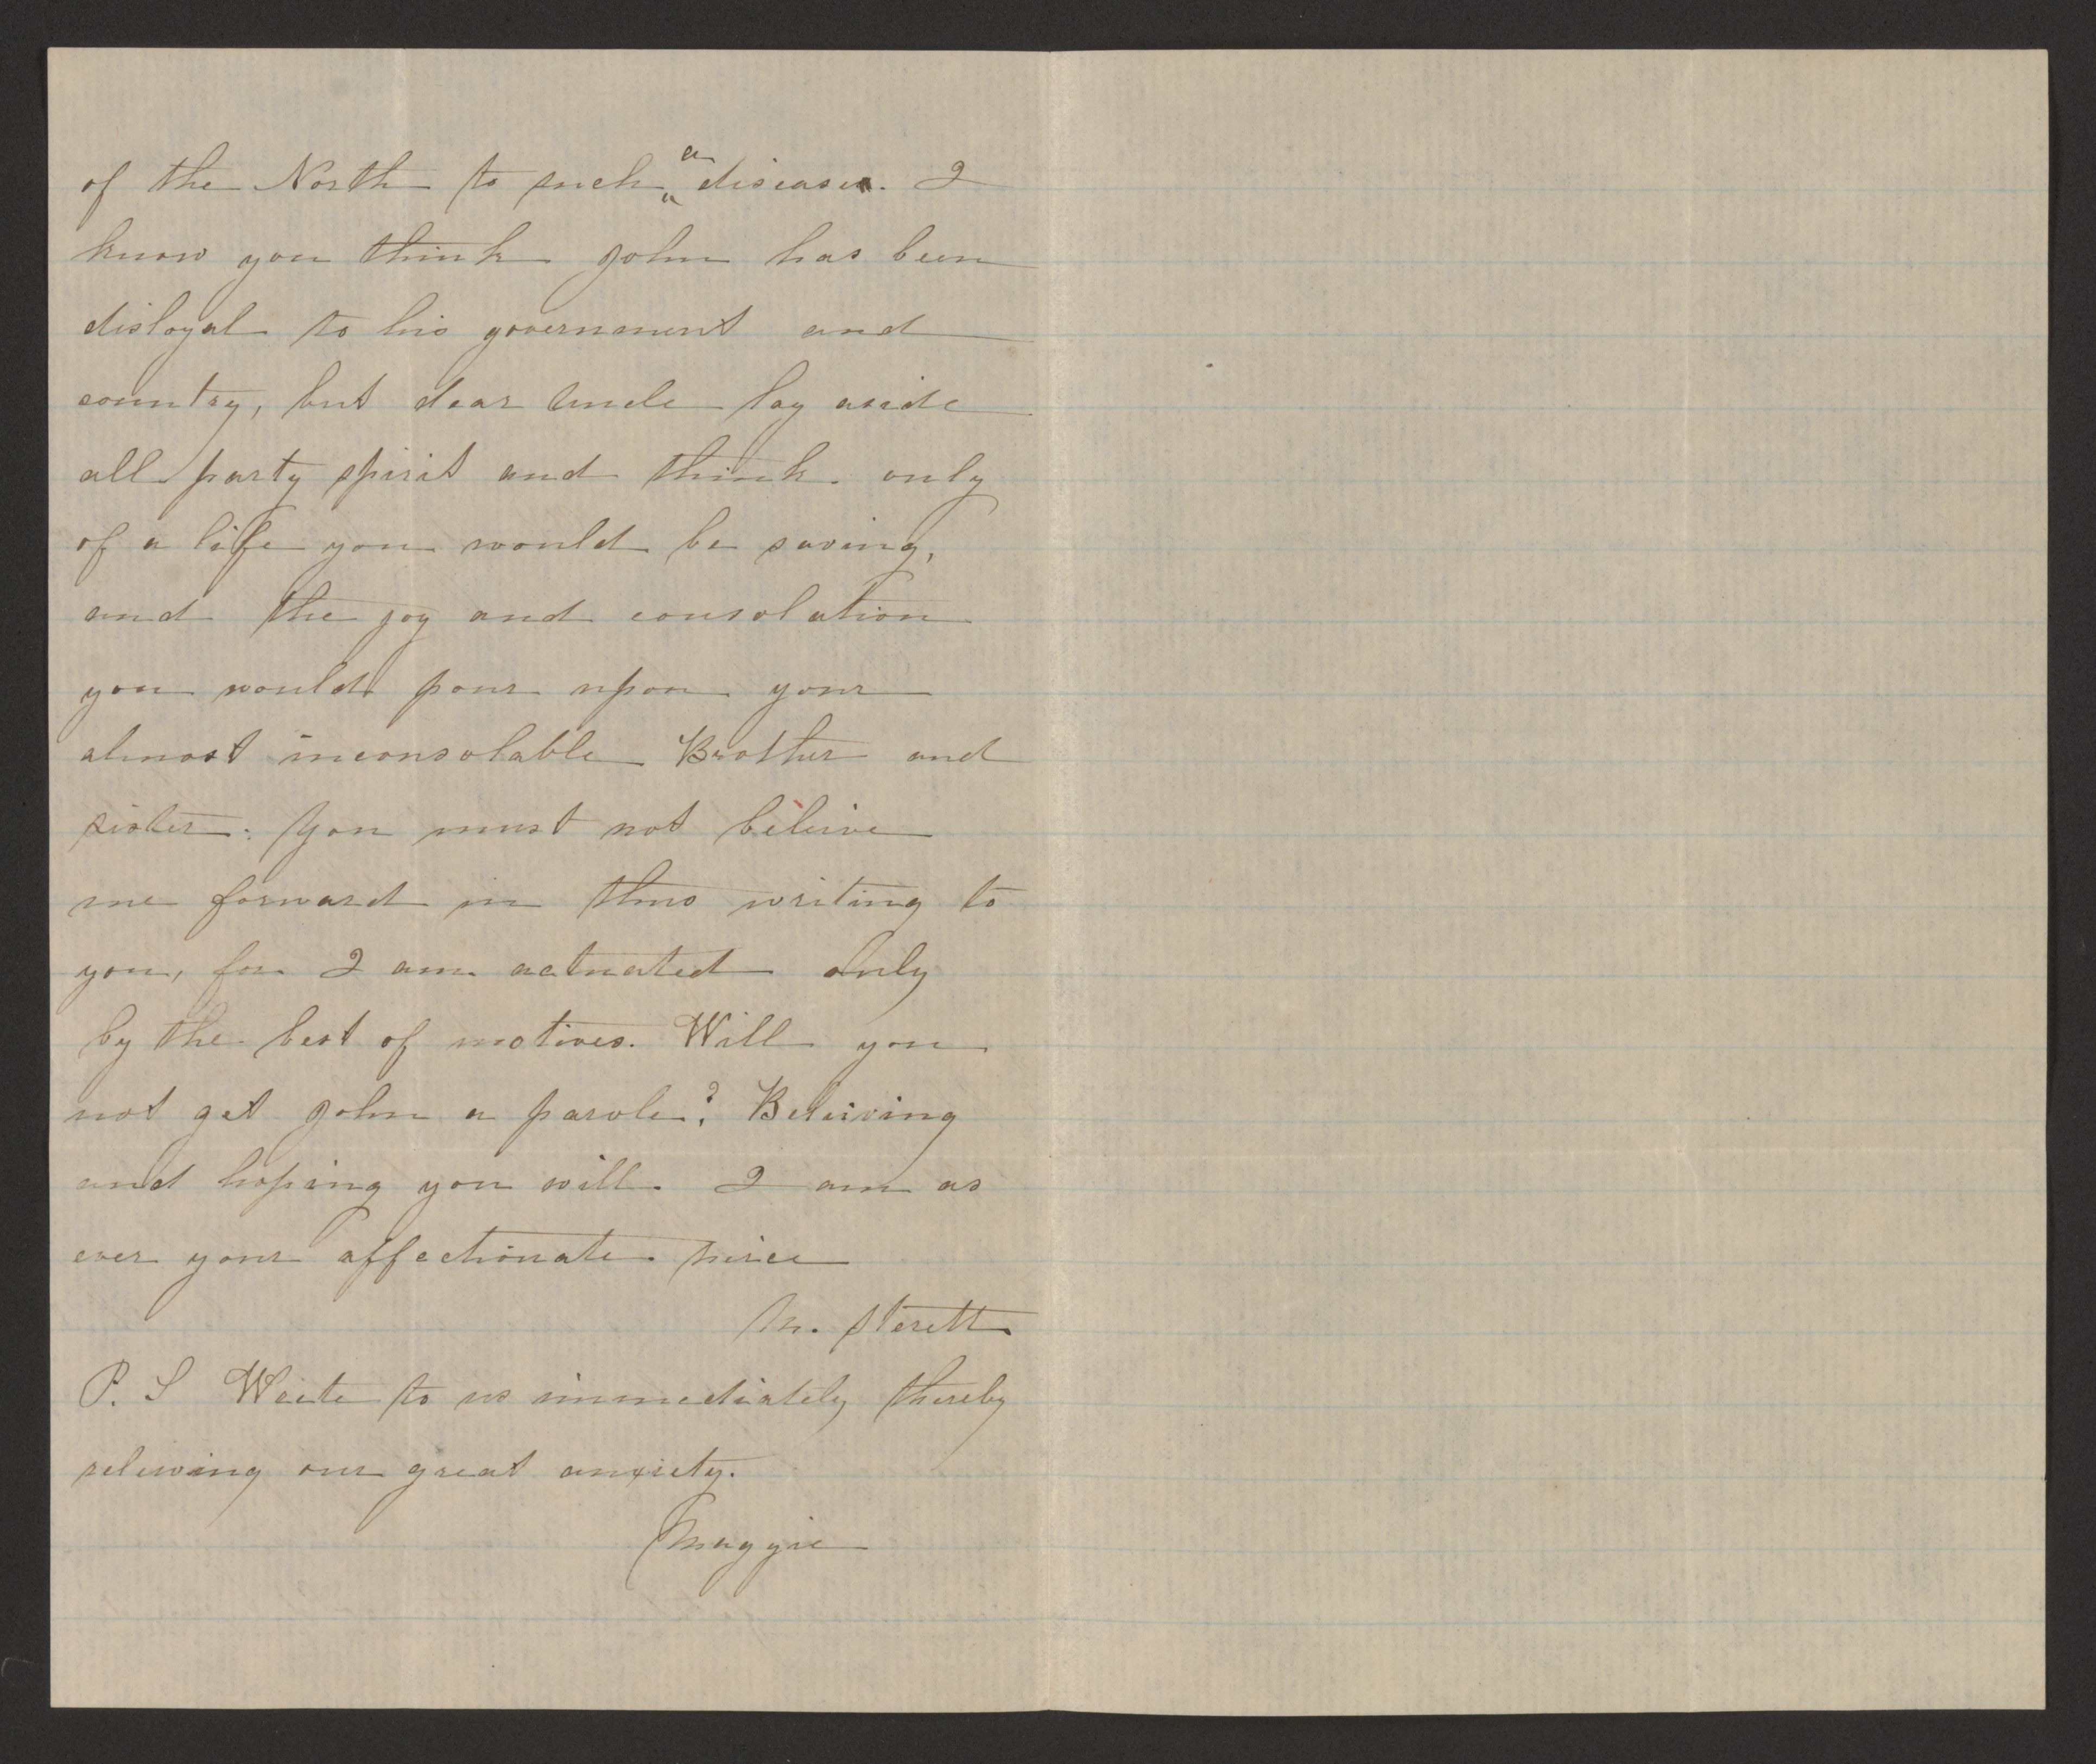 of the North to such a disease. I
know you think John has been
disloyal to his government and
country, but dear Uncle lay aside
all party spirit and think only
of a life you would be saving,
and the joy and consolation
you would pour upon your
almost inconsolable Brother and
sister. You must not beleive
me forward in thus writing to
you, for I am actuated only
by the best of motives. Will you
not get John a parole? Beleiving
and hoping you will. I am as
ever your affectionate neice
M. Sterett
P. S Write to us immediately thereby
releiving our great anxiety.
Maggie